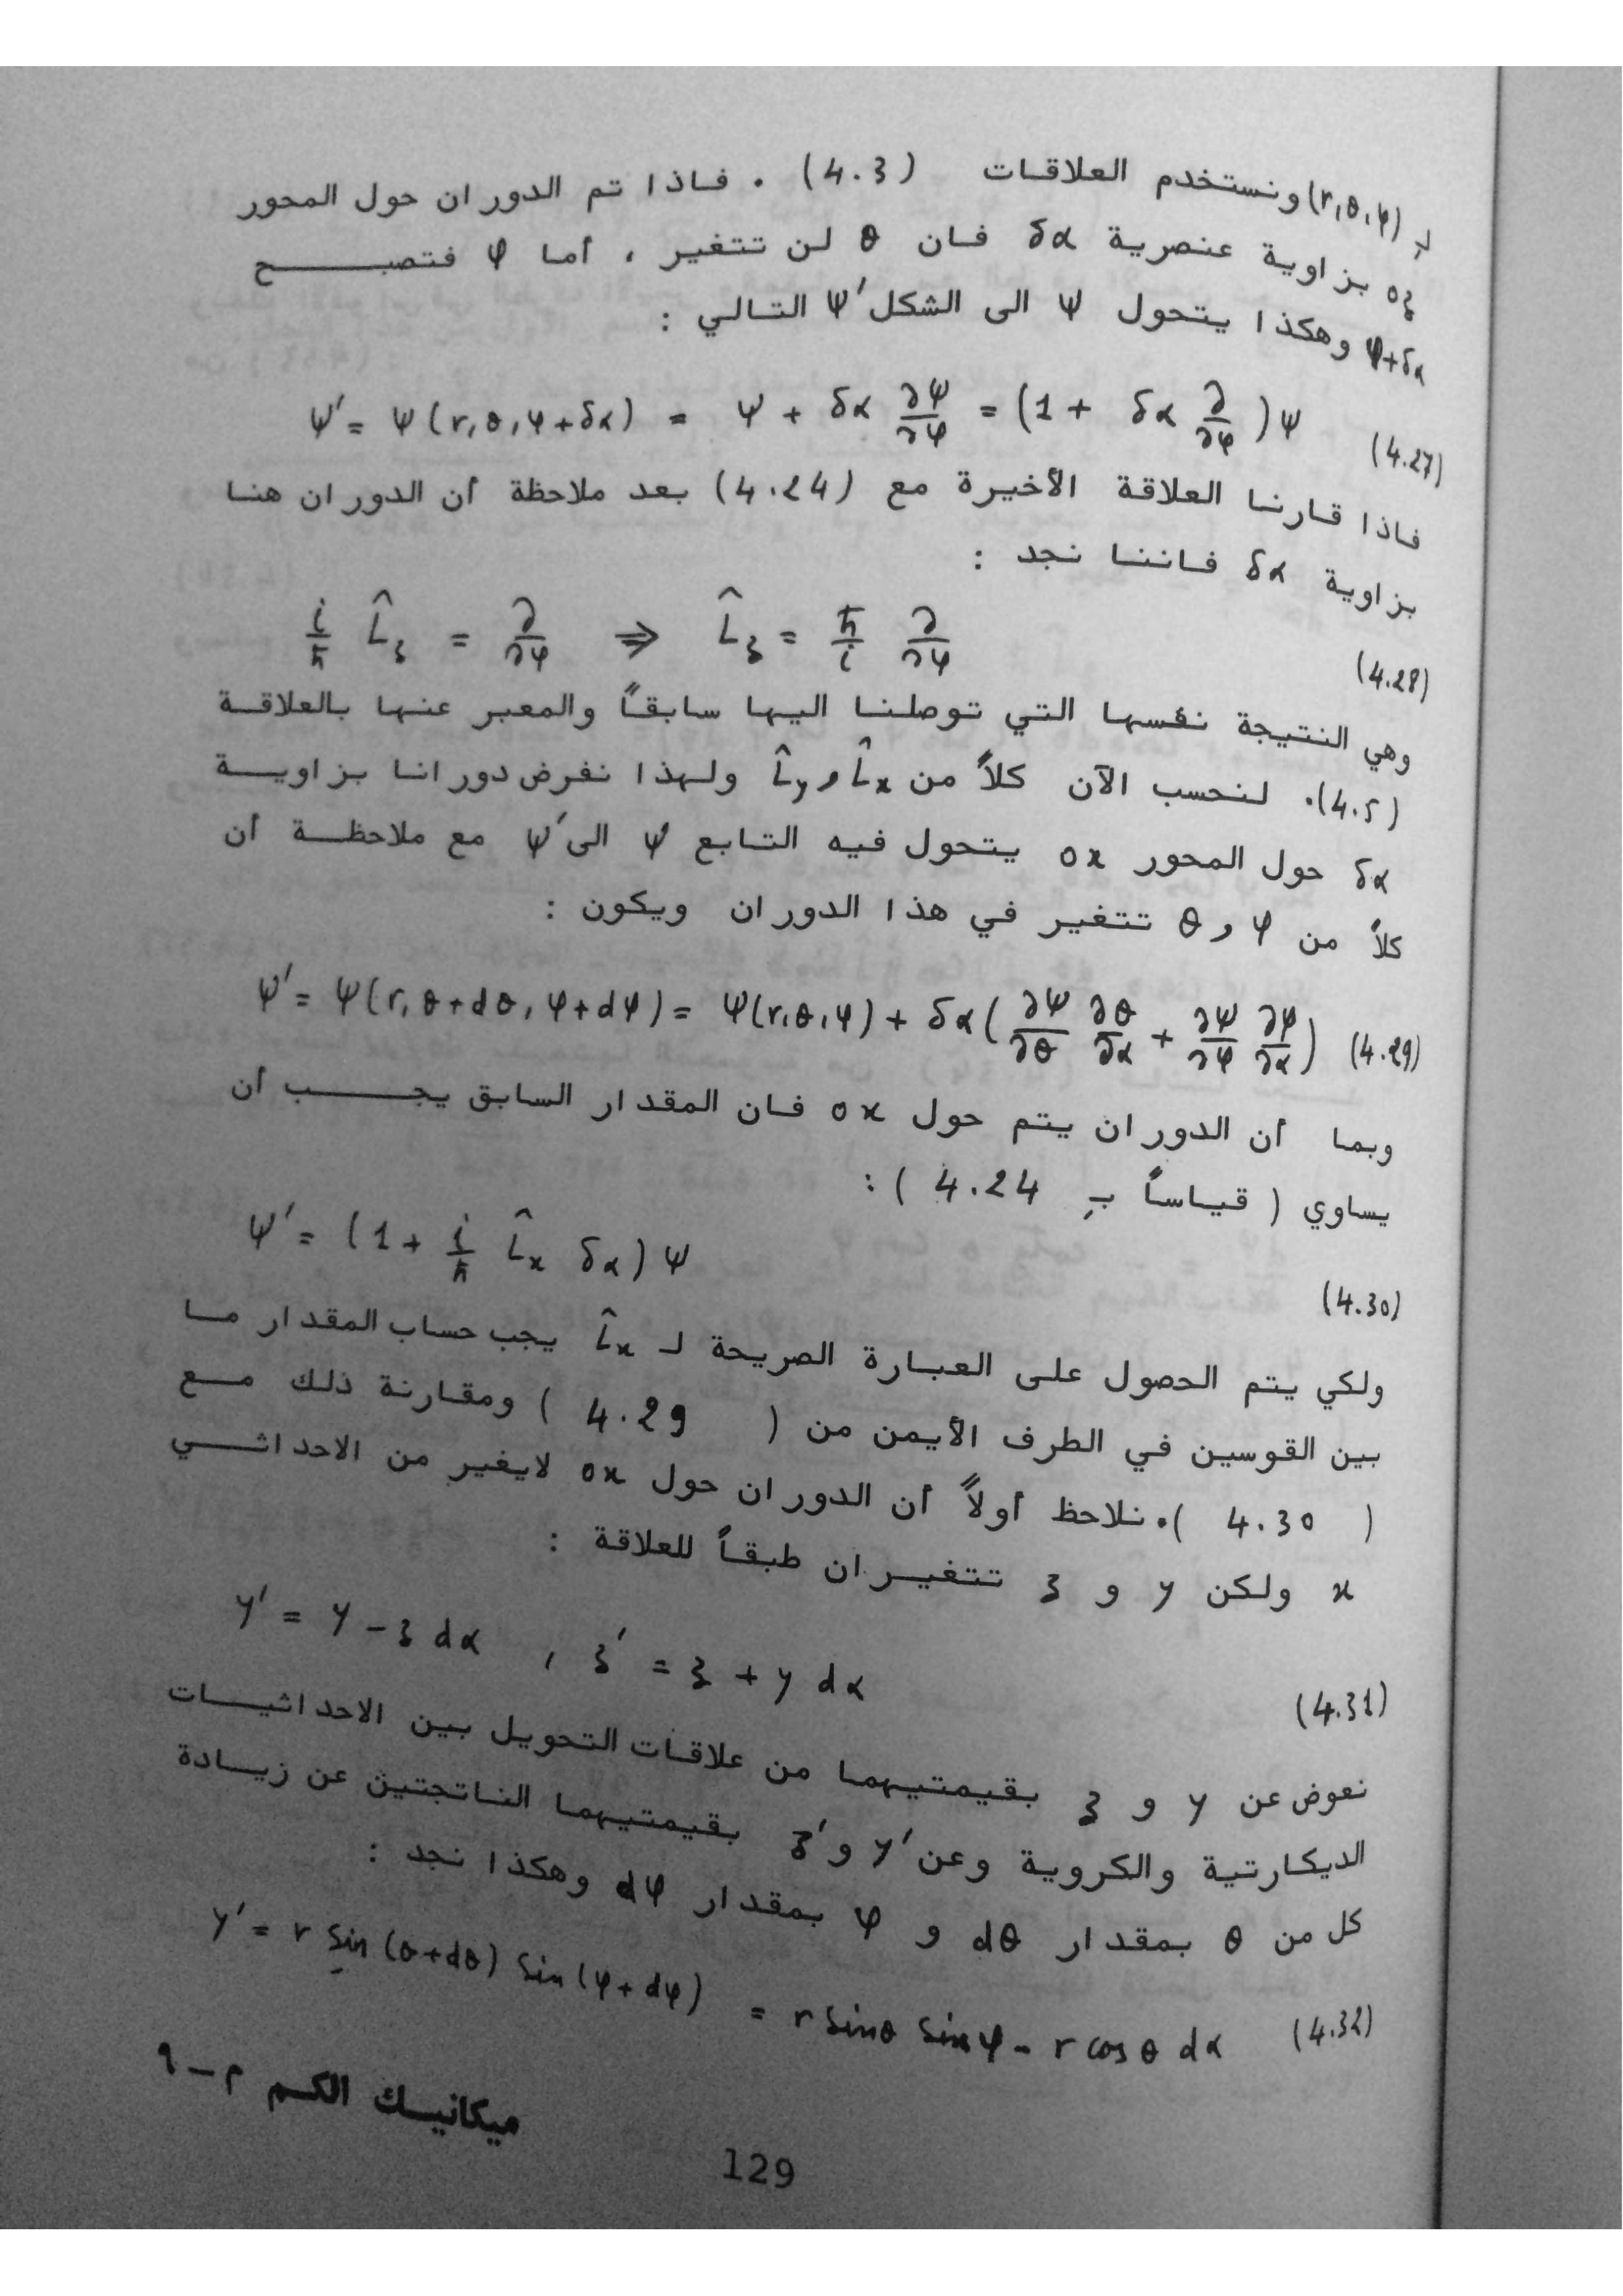 لـِ (r,θ,φ) ونستخدم العلاقات (4.3) . فاذا تم الدوران حول المحور
oz بزاوية عنصرية δα فان θ لن تتغير ، أما φ فتصبح
φ+δα وهكذا يتحول ψ الى الشكل ψ′ التالي :
ψ′ = ψ(r,θ,φ+δα) = ψ + δα ∂ψ/∂φ = (1 + δα ∂/∂φ)ψ (4.27)
فاذا قارنا العلاقة الأخيرة مع (4.24) بعد ملاحظة أن الدوران هنا
بزاوية δα فاننا نجد :
i/ħ L̂z = ∂/∂φ ⇒ L̂z = ħ/i ∂/∂φ (4.28)
وهي النتيجة نفسها التي توصلنا اليها سابقاً والمعبر عنها بالعلاقة
(4.5). لنحسب الآن كلاً من L̂x و L̂y ولهذا نفرض دورانا بزاوية
δα حول المحور ox يتحول فيه التابع ψ الى ψ′ مع ملاحظة أن
كلاً من φ و θ تتغير في هذا الدوران ويكون :
ψ′ = ψ(r,θ+dθ,φ+dφ) = ψ(r,θ,φ) + δα(∂ψ/∂θ ∂θ/∂α + ∂ψ/∂φ ∂φ/∂α) (4.29)
وبما أن الدوران يتم حول ox فان المقدار السابق يجب أن
يساوي ( قياساً بـِ 4.24 ) :
ψ′ = (1 + i/ħ L̂x δα)ψ (4.30)
ولكي يتم الحصول على العبارة الصريحة لـ L̂x يجب حساب المقدار ما
بين القوسين في الطرف الأيمن من ( 4.29 ) ومقارنة ذلك مع
( 4.30 ). نلاحظ أولاً أن الدوران حول ox لايغير من الاحداثي
x ولكن y و z تتغيران طبقاً للعلاقة :
y′ = y − z dα , z′ = z + y dα (4.31)
نعوض عن y و z بقيمتيهما من علاقات التحويل بين الاحداثيات
الديكارتية والكروية وعن y′ و z′ بقيمتيهما الناتجتين عن زيادة
كل من θ بمقدار dθ و φ بمقدار dφ وهكذا نجد :
y′ = r sin(θ+dθ) sin(φ+dφ) = r sinθ sinφ − r cosθ dα (4.32)
ميكانيك الكم م–٩
129